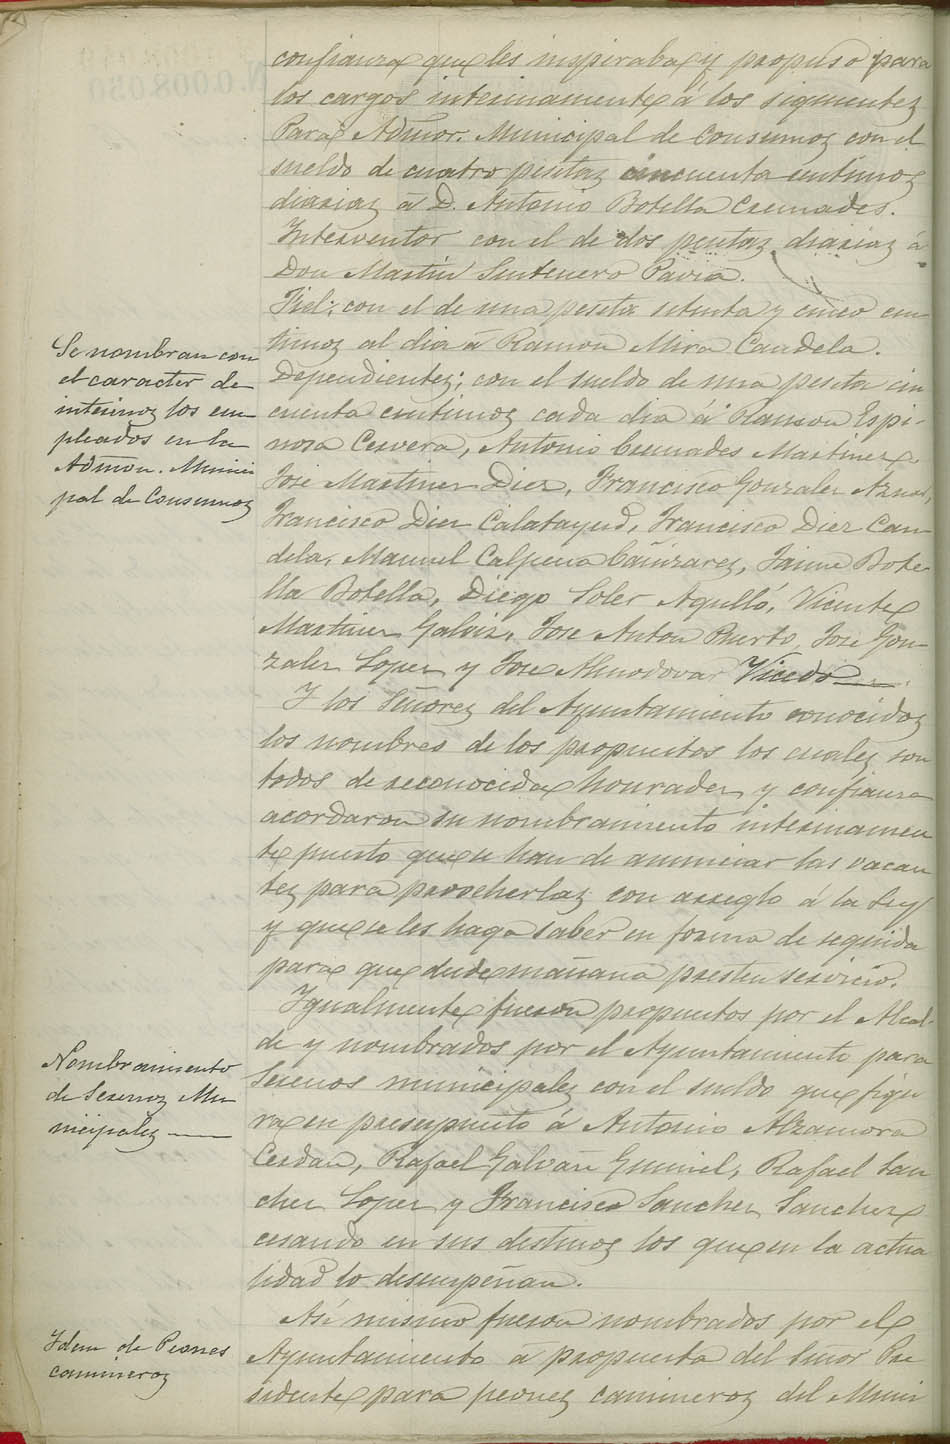 confianza que les inspiraba y propuso para
los cargos interinamente, á los siguientes
Para Admor. Municipal de Consumos con el
sueldo de cuatro pesetas cincuenta centimos
diarias á D. Antonio Botella Cremades.
Interventor con el de dos pesetas diarias á
Don Martin Sentenero Pavia.
Fiel; con el de una peseta setenta y cinco cen
timos al dia á Ramon Mira Candela.
Se nombran con
el caracter de
interinos los em
pleados en la
Admon. Munici
pal de Consumos
Dependientes; con el sueldo de una peseta cin
cuenta centimos cada dia á Ramon Espi-
nosa Cervera, Antonio Cremades Martinez
Jose Martinez Diez, Francisco Gonzalez Aznar,
Francisco Diez Calatayud, Francisco Diez Can-
dela, Manuel Calpena Cañizares, Jaime Bote-
lla Botella, Diego Soler Agulló, Vicente
Martinez Galvis, Jose Anton Puerto, Jose Gon-
zalez Lopez y Jose Almodovar Vicedo
Y los Señores del Ayuntamiento conocidos
los nombres de los propuestos los cuales son
todos de reconocida honradez y confianza
acordaron su nombramiento interinamen
te puesto que se han de anunciar las vacan
tes para proveherlas con arreglo á la Ley
y que se les haga saber en forma de seguida
para que desde mañana presten servicio.
Igualmente fueron propuestos por el Alcal-
de y nombrados por el Ayuntamiento para
Nombramiento
de Serenos Mu
nicipales
Serenos municipales con el sueldo que figu
ra en presupuesto á Antonio Alzamora
Cerdan, Rafael Galvañ Guminel, Rafael San
chez Lopez y Francisco Sanchez Sanchez
cesando en sus destinos los que en la actua
lidad lo desempeñan.
Asi mismo fueron nombrados por el
Idem de Peones
camineros
Ayuntamiento á propuesta del Señor Pre
sidente para peones camineros del Muni